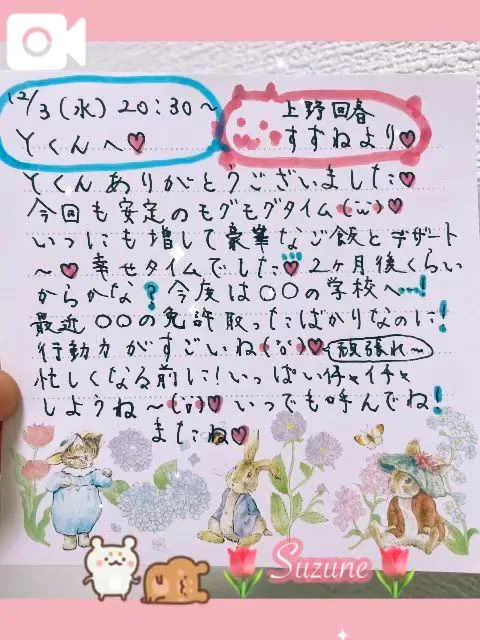 12/3(水) 20:30〜
Yくんへ♥
上野回春
すずねより♥
Yくんありがとうございました♥
今回も安定のモグモグタイム(¨)♥
いつにも増して豪華なご飯とデザート
〜♥幸せタイムでした♥2ヶ月後くらい
からかな?今度は〇〇の学校へ…!
最近〇〇の免許取ったばかりなのに!
行動力がすごいね(¨)♥頑張れ〜
忙しくなる前に!いっぱいイチャイチャ
しようね〜(¨)♥いつでも呼んでね!
またね♥
Suzune